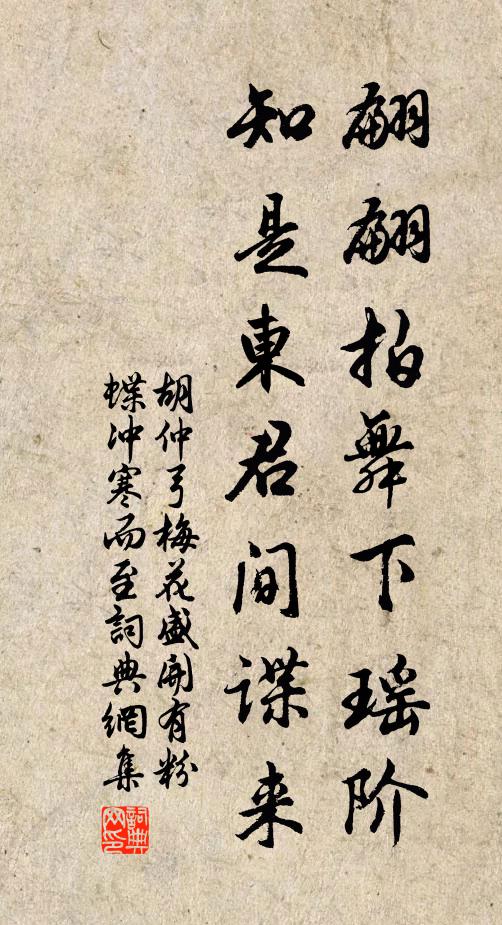 翩翩拍舞下瑶阶
知是東君间諜来
胡仲弓梅花盛開有粉
蝶冲寒而至詞典網集
詞典网印